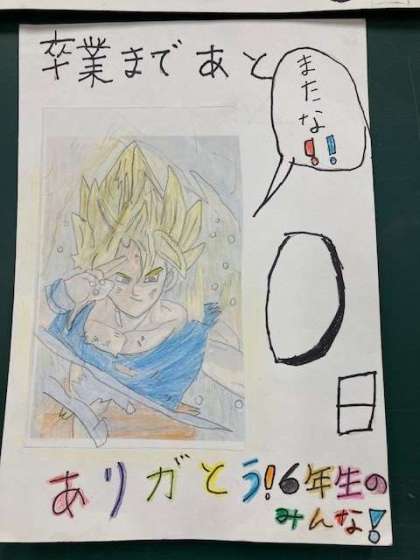 卒業まであと
またな!!
0
日
ありがとう!6年生の
みんな!